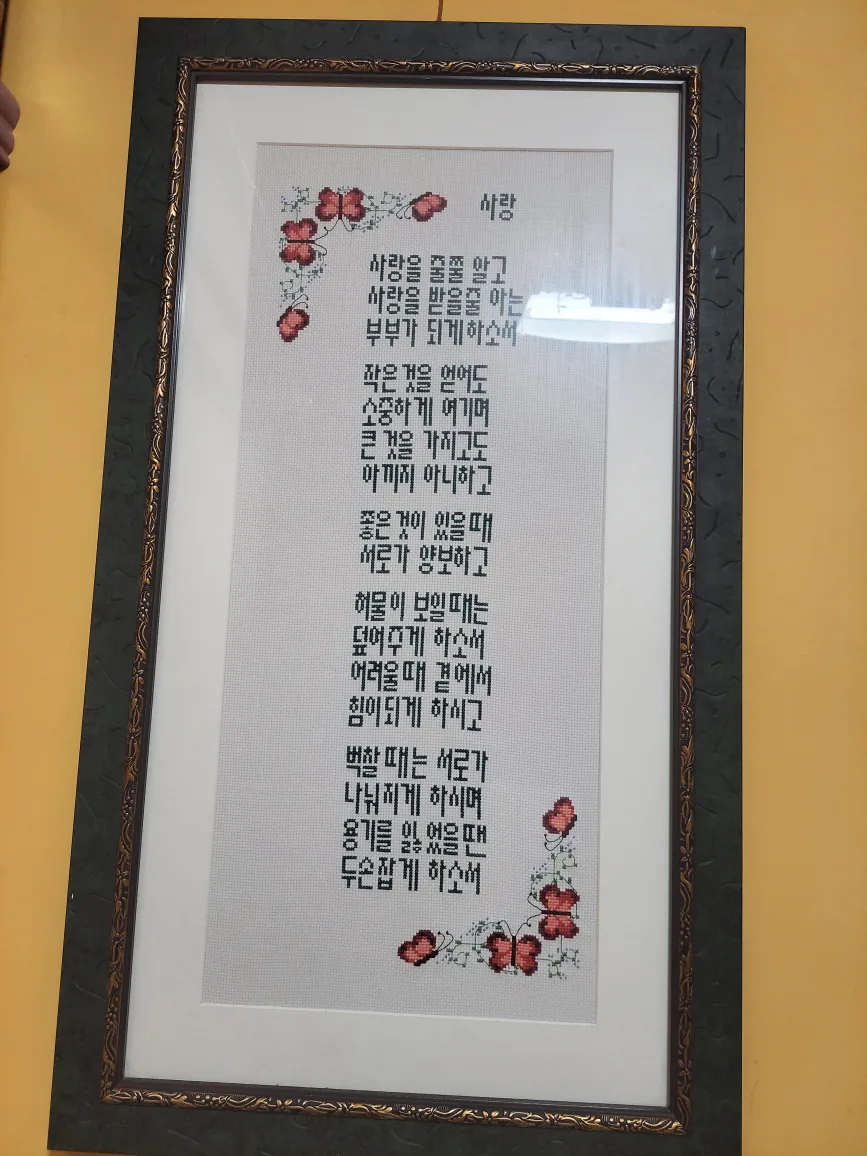 사랑
사랑을 줄줄 알고
사랑을 받을줄 아는
부부가 되게하소서
작은 것을 얻어도
소중하게 여기며
큰 것을 가지고도
아끼지 아니하고
좋은것이 있을때
서로가 양보하고
허물이 보일때는
덮어주게 하소서
어려울때 곁에서
힘이되게 하시고
벅찰때는 서로가
나눠지게 하시며
용기를 잃었을땐
두손잡게 하소서